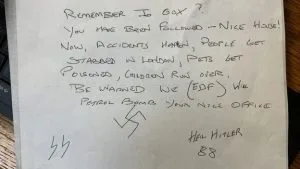 REMEMBER JO COX?
YOU HAVE BEEN FOLLOWED - NICE HOUSE!
NOW, ACCIDENTS HAPPEN, PEOPLE GET
STABBED IN LONDON, PETS GET
POISONED, CHILDREN RUN OVER.
BE WARNED WE (EDF) WILL
PETROL BOMB YOUR NICE OFFICE
HEIL HITLER
88